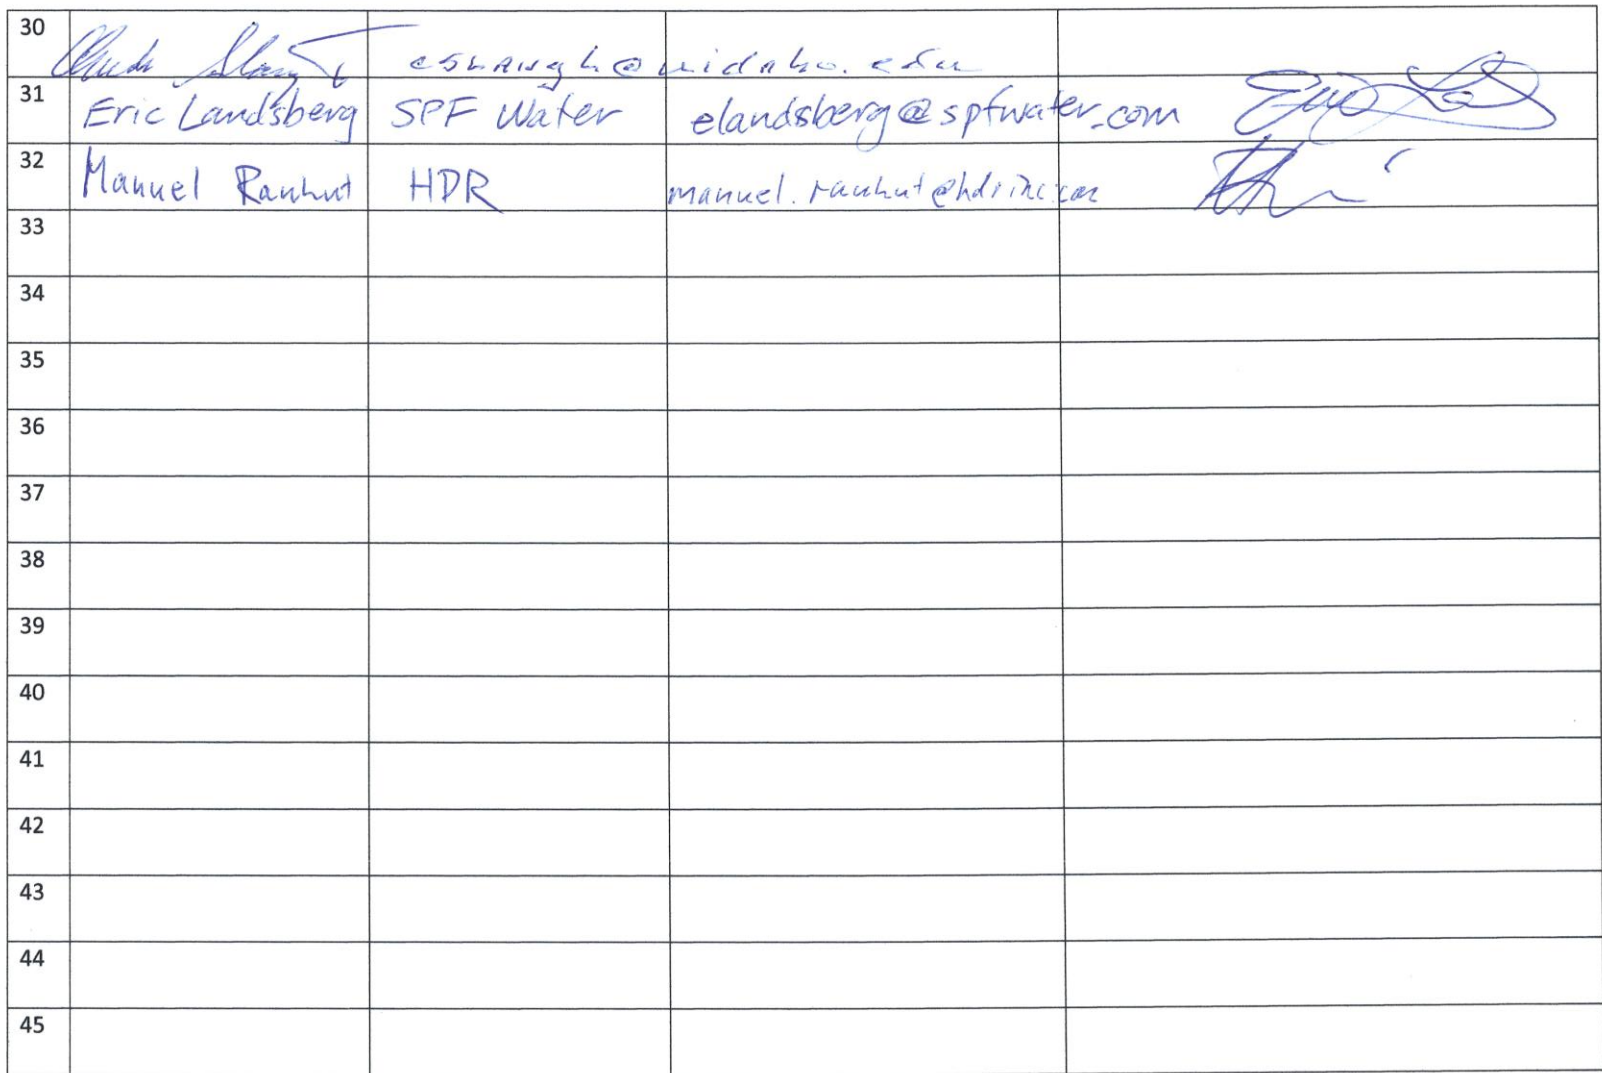 30 @uidaho.edu
31 Eric Landsberg SPF Water elandsberg@spfwater.com
32 Manuel Rauhut HDR manuel.rauhut@hdrinc.com
33
34
35
36
37
38
39
40
41
42
43
44
45